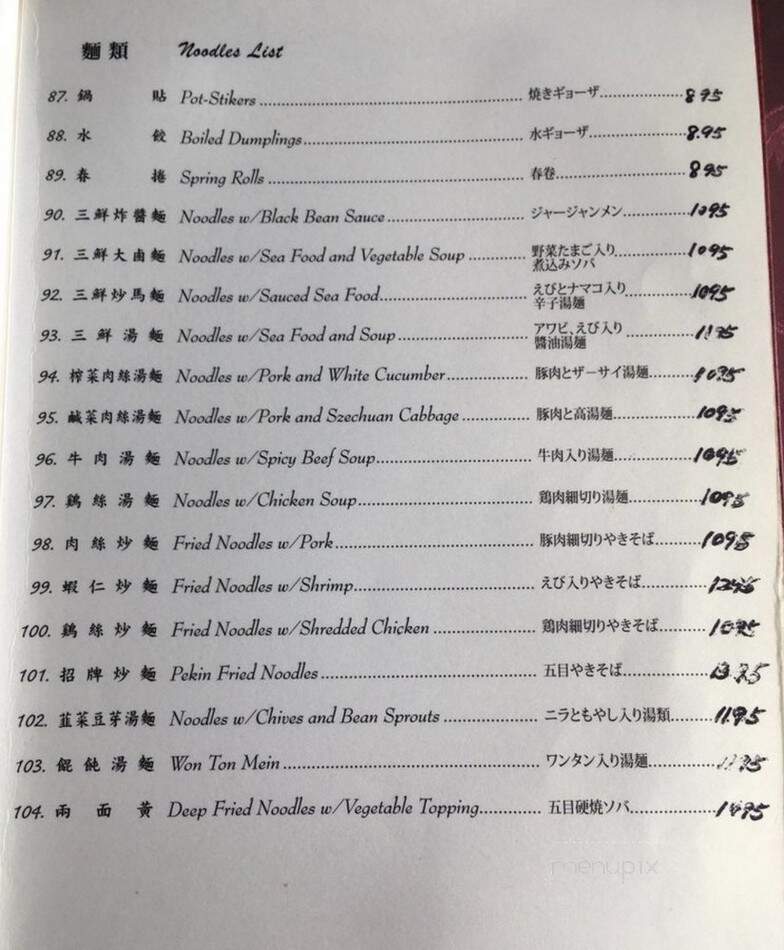 麵類 Noodles List
87. 鍋貼 Pot-Stikers 焼きギョーザ 8.95
88. 水餃 Boiled Dumplings 水ギョーザ 8.95
89. 春捲 Spring Rolls 春巻 8.95
90. 三鮮炸醬麵 Noodles w/Black Bean Sauce ジャージャンメン 1095
91. 三鮮大鹵麵 Noodles w/Sea Food and Vegetable Soup 野菜たまご入り 1095
煮込みソバ
92. 三鮮炒馬麵 Noodles w/Sauced Sea Food えびとナマコ入り 1095
辛子湯麺
93. 三鮮湯麵 Noodles w/Sea Food and Soup アワビ、えび入り
醬油湯麺
94. 榨菜肉絲湯麵 Noodles w/Pork and White Cucumber 豚肉とザーサイ湯麺 1095
95. 鹹菜肉絲湯麵 Noodles w/Pork and Szechuan Cabbage 豚肉と高湯麺 1095
96. 牛肉湯麵 Noodles w/Spicy Beef Soup 牛肉入り湯麺 1095
97. 鷄絲湯麵 Noodles w/Chicken Soup 鶏肉細切り湯麺 1095
98. 肉絲炒麵 Fried Noodles w/Pork 豚肉細切りやきそば 1095
99. 蝦仁炒麵 Fried Noodles w/Shrimp えび入りやきそば
100. 鷄絲炒麵 Fried Noodles w/Shredded Chicken 鶏肉細切りやきそば 1095
101. 招牌炒麵 Pekin Fried Noodles 五目やきそば
102. 韮菜豆芽湯麵 Noodles w/Chives and Bean Sprouts ニラともやし入り湯類 11.95
103. 餛飩湯麵 Won Ton Mein ワンタン入り湯麺
104. 兩面黃 Deep Fried Noodles w/Vegetable Topping 五目硬焼ソバ
menupix